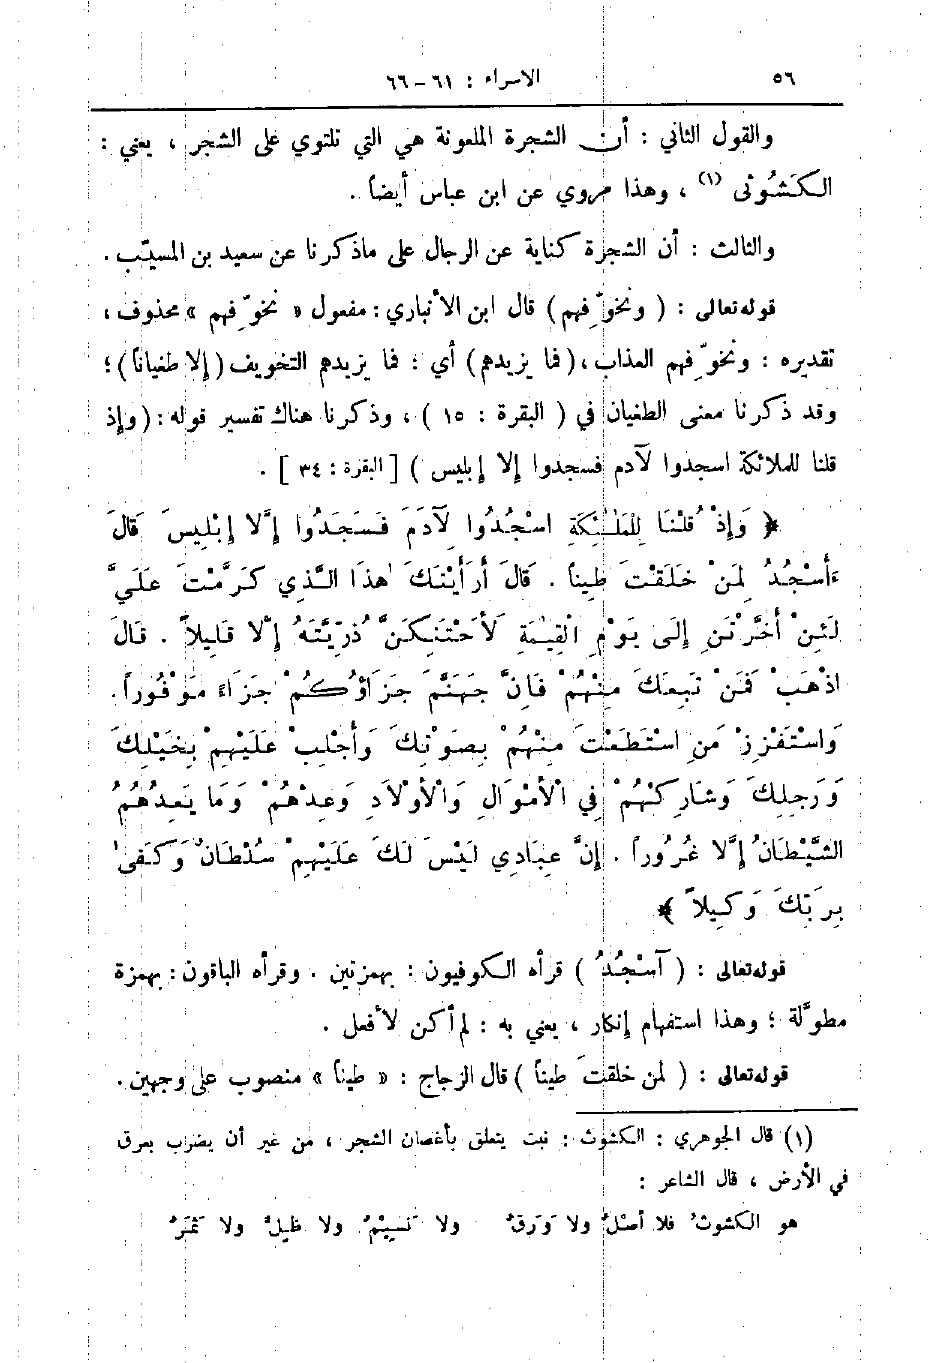 ٥٦ الاسراء : ٦١ – ٦٦
والقول الثاني : أن الشجرة الملعونة هي التي تلتوي على الشجر ، يعني :
الكَشُوثى (١) ، وهذا مروي عن ابن عباس أيضاً .
والثالث : أن الشجرة كناية عن الرجال على ماذكرنا عن سعيد بن المسيّب .
قوله تعالى : ( ونخوّفهم ) قال ابن الأنباري : مفعول « نخوّفهم » محذوف ،
تقديره : ونخوّفهم العذاب ، ( فما يزيدهم ) أي : فما يزيدهم التخويف ( إلا طغياناً ) ؛
وقد ذكرنا معنى الطغيان في ( البقرة : ١٥ ) ، وذكرنا هناك تفسير قوله : ( وإذ
قلنا للملائكة اسجدوا لآدم فسجدوا إلا إبليس ) [ البقرة : ٣٤ ] .
﴿ وَإِذْ قُلْنَا لِلْمَلٰئِكَةِ اسْجُدُوا لِآدَمَ فَسَجَدُوا إِلَّا إِبْلِيسَ قَالَ
ءَأَسْجُدُ لِمَنْ خَلَقْتَ طِيناً . قَالَ أَرَأَيْتَكَ هٰذَا الَّذِي كَرَّمْتَ عَلَيَّ
لَئِنْ أَخَّرْتَنِ إِلَى يَوْمِ الْقِيٰمَةِ لَأَحْتَنِكَنَّ ذُرِّيَّتَهُ إِلَّا قَلِيلاً . قَالَ
اذْهَبْ فَمَنْ تَبِعَكَ مِنْهُمْ فَإِنَّ جَهَنَّمَ جَزَاؤُكُمْ جَزَاءً مَوْفُوراً .
وَاسْتَفْزِزْ مَنِ اسْتَطَعْتَ مِنْهُمْ بِصَوْتِكَ وَأَجْلِبْ عَلَيْهِمْ بِخَيْلِكَ
وَرَجِلِكَ وَشَارِكْهُمْ فِي الْأَمْوَالِ وَالْأَوْلَادِ وَعِدْهُمْ وَمَا يَعِدُهُمُ
الشَّيْطَانُ إِلَّا غُرُوراً . إِنَّ عِبَادِي لَيْسَ لَكَ عَلَيْهِمْ سُلْطَانٌ وَكَفَىٰ
بِرَبِّكَ وَكِيلاً ﴾
قوله تعالى : ( آسْجُدُ ) قرأه الكوفيون : بهمزتين . وقرأه الباقون : بهمزة
مطوَّلة ؛ وهذا استفهام إنكار ، يعني به : لم أكن لأفعل .
قوله تعالى : ( لمن خلقتَ طيناً ) قال الزجاج : « طيناً » منصوب على وجهين .
(١) قال الجوهري : الكشوث : نبت يتعلق بأغصان الشجر ، من غير أن يضرب بعرق
في الأرض ، قال الشاعر :
هو الكشوثُ فلا أصْلٌ ولا وَرَقٌ ولا نَسِيْمٌ ولا ظِلٌّ ولا ثَمَرُ